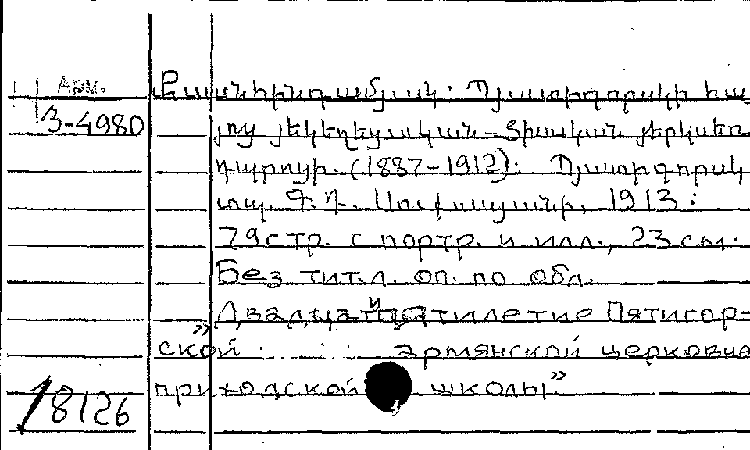 Арм. Քսանհինգամեակ: Պյատիգորսկի հա
3-4980 յոց յեկեղեցական-ծխական յերկսեռ
դպրոցի. (1887-1912): Պյատիգորսկ
տպ. Գ. Դ. 1913:
79 стр. с портр. и илл., 23 см.
Без тит.л. оп. по обл.
„Двадцатипятилетие Пятигор-
ской армянской церковно
приходской школы”
18126